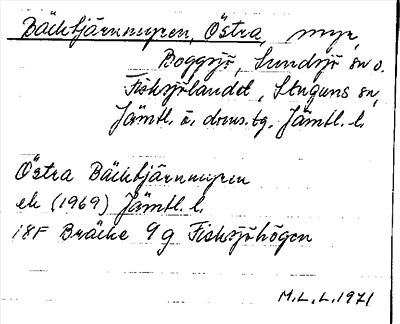 Bäcktjärnmyren, Östra, myr,
Boggsjö, Sundsjö sn o.
Fisksjölandet, Stuguns sn,
Jämtl. ö. doms.tg. Jämtl. l.
Östra Bäcktjärnmyren
ek (1969) Jämtl. l.
18F Bräcke 9g Fisksjöhögen
M.L.L. 1971